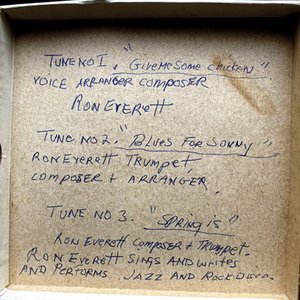 TUNE NO I. "GIVE ME SOME CHICKEN"
VOICE ARRANGER COMPOSER
RON EVERETT
TUNE NO 2. "BLUES FOR SONNY"
RON EVERETT TRUMPET,
COMPOSER + ARRANGER.
TUNE NO 3. "SPRING IS"
RON EVERETT COMPOSER + TRUMPET.
RON EVERETT SINGS AND WRITES
AND PERFORMS JAZZ AND ROCK DISCO.